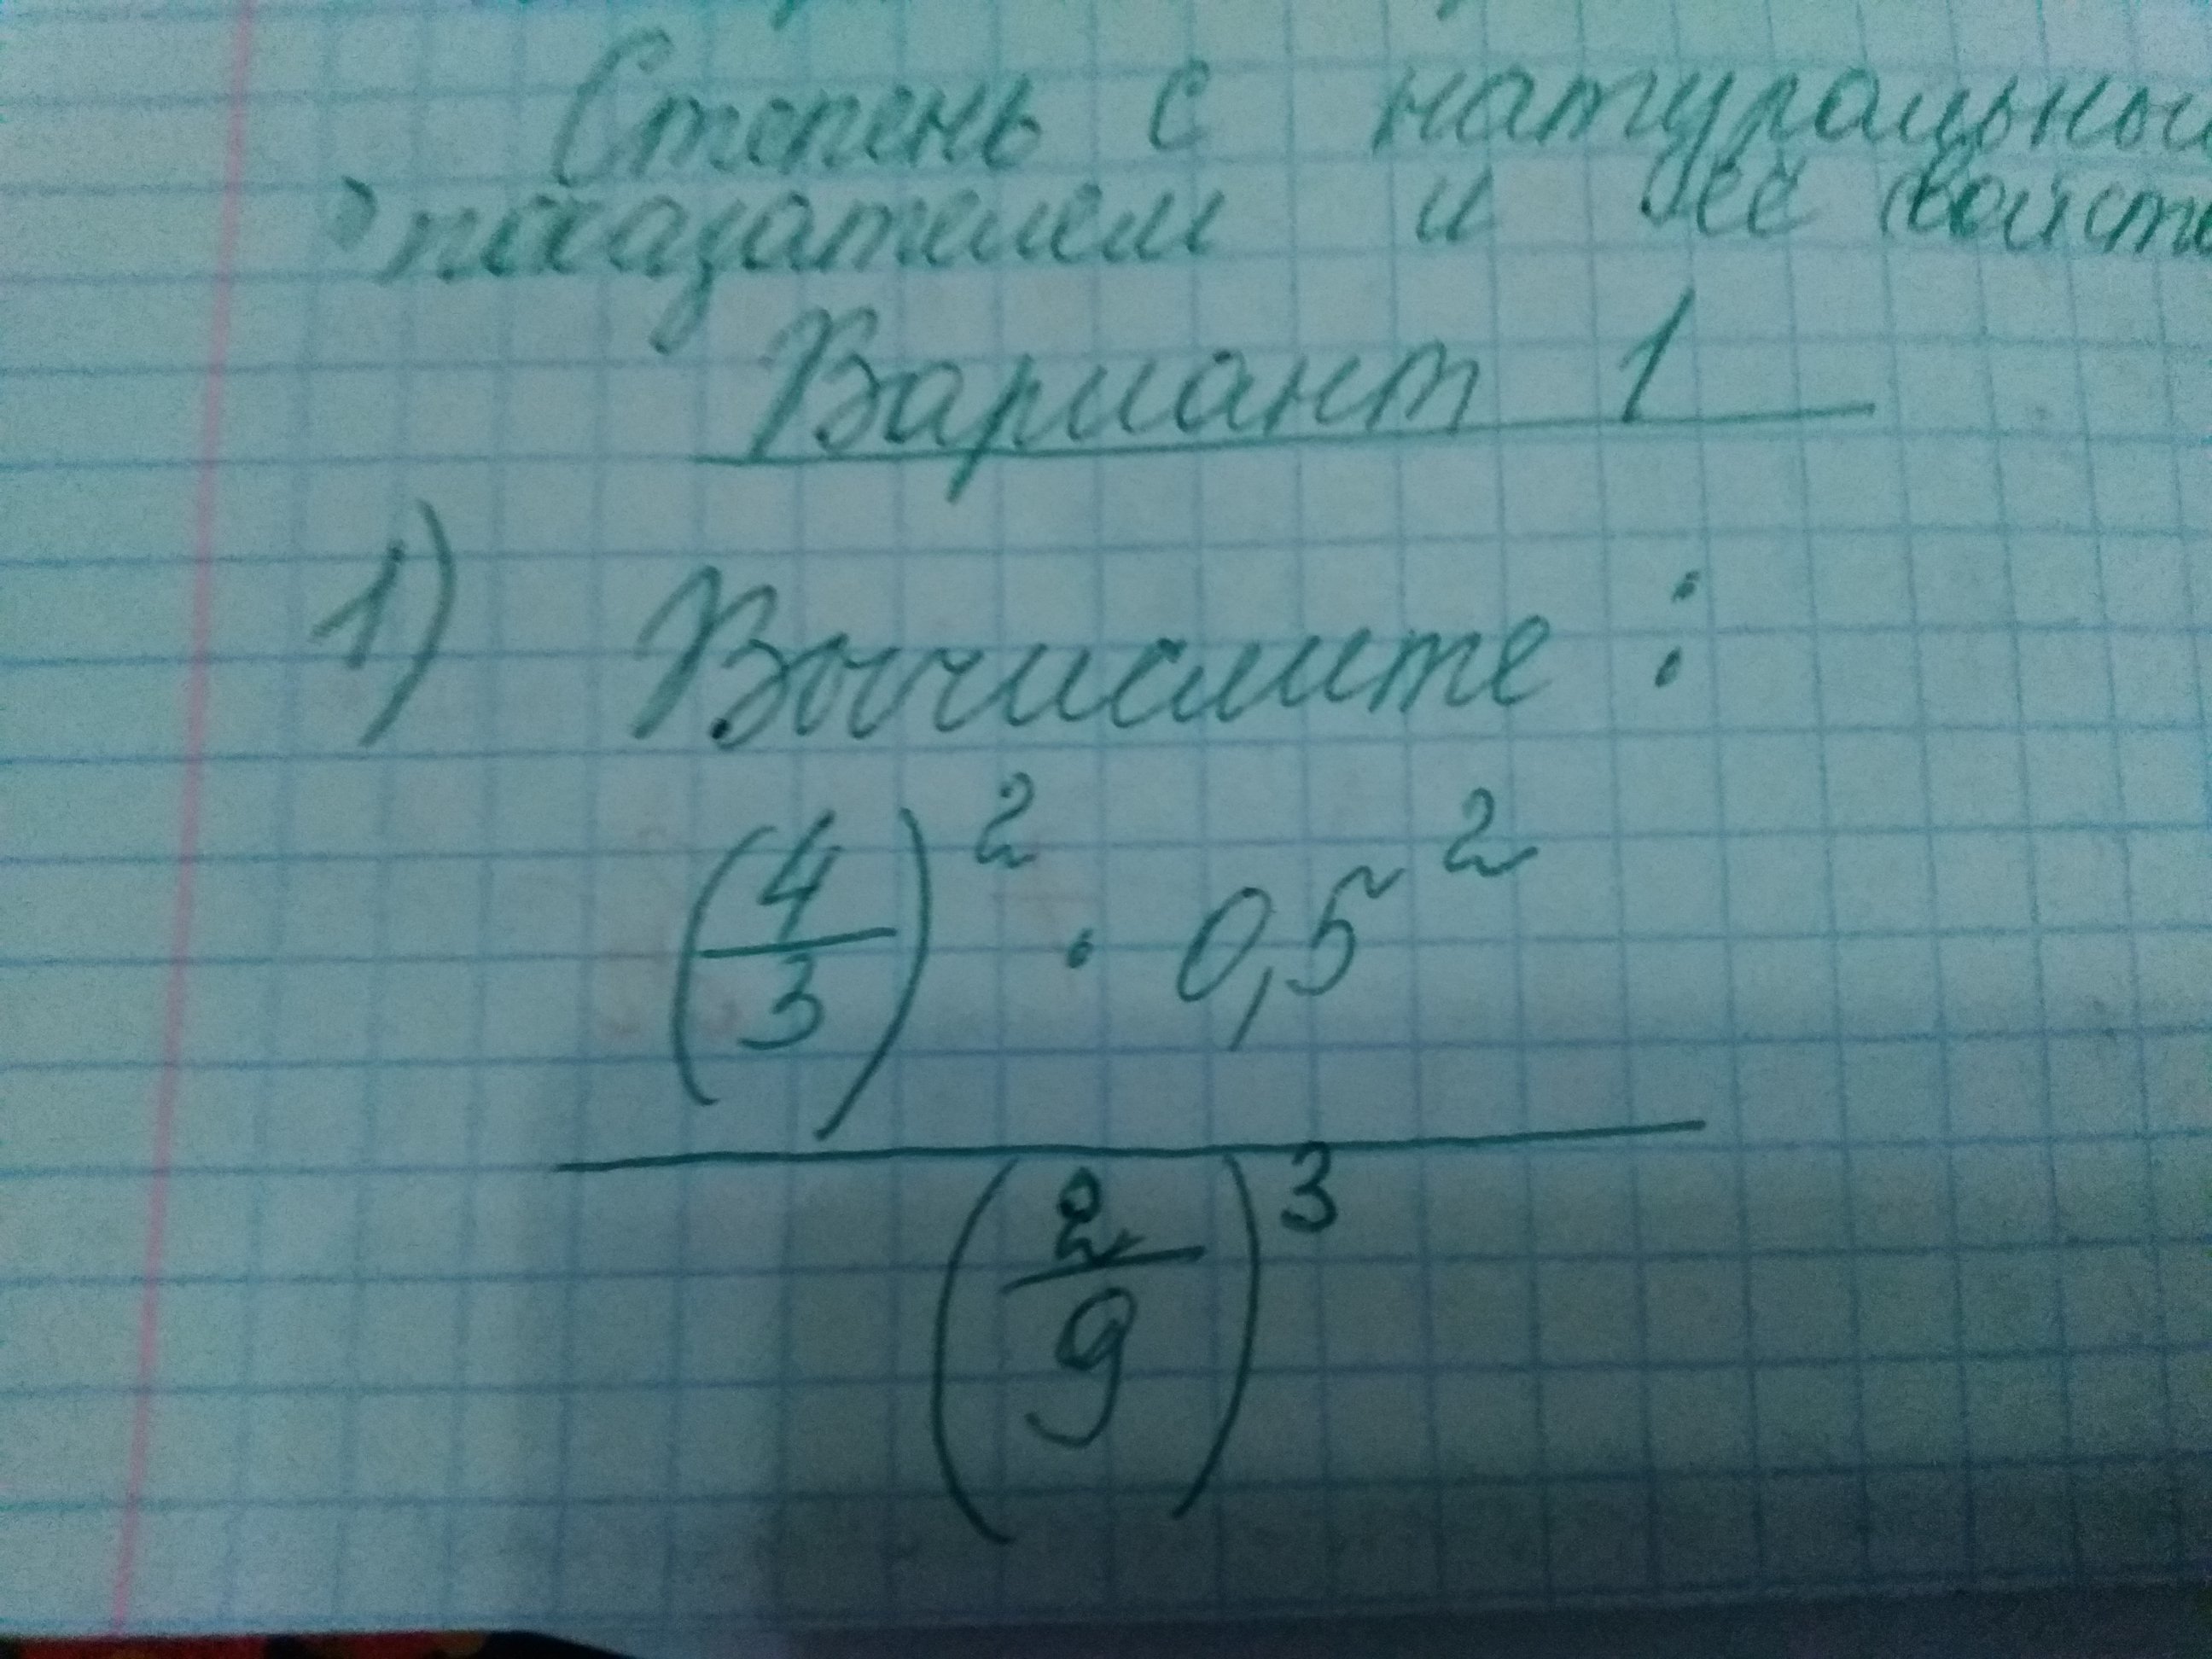 Степень с натуральны
показателем и её свойств
Вариант 1
1) Вычислите:
(4/3)² · 0,5²
(2/9)³